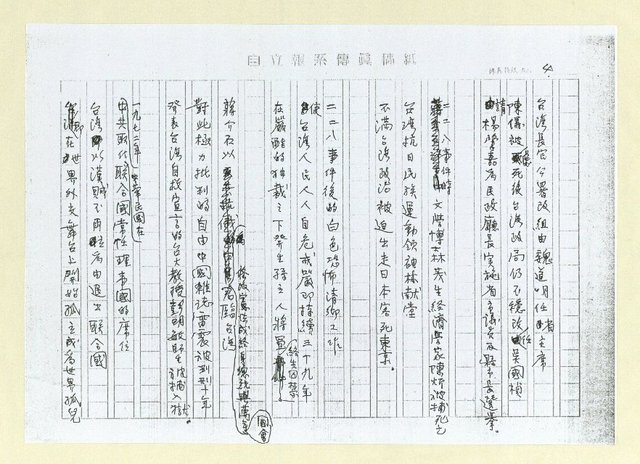 自立報系傳真稿紙
4.
台灣長官公署改組由魏道明任省主席
陳儀被 死後台灣政局仍不穩改任吳國楨
請楊肇嘉為民政廳長實施省主議員及縣市長選舉。
二二八事件時 文學博士林茂生經濟學家陳炘被捕死亡
台灣抗日民族運動領袖林献堂
不滿台灣政治被迫出走日本客死東京。
二二八事件後的白色恐怖清鄉工作
使台灣人民人人自危戒嚴即持續三十九年
在嚴酷的独裁之下發生孫立人將軍 終生囚禁
蔣介石以 君臨台灣
修改憲法成終身總統與萬年國會
對此極力批判的自由中國雜誌雷震被判刑十年
發表台湾自救宣言的台大教授彭明敏師生被捕入獄。
一九七一年中華民國在
中共取代聯合國常任理事國的席位
台灣即以漢賊不兩立為由退出聯合國
台灣即在世界外交舞台上開始孤立成為世界孤兒